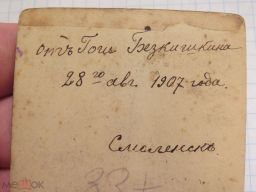 отъ Гоги Безкишкина
28го авг. 1907 года.
Смоленскъ
33+